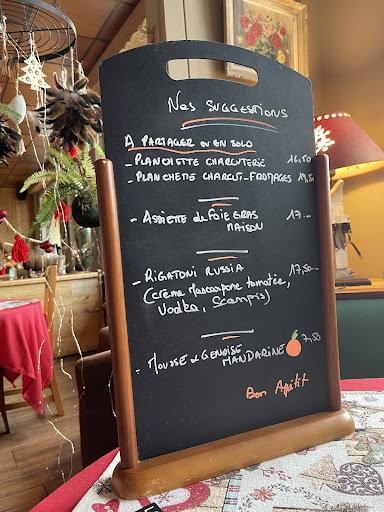 Nos SUGGESTIONS
A PARTAGER OU EN SOLO
- PLANCHETTE CHARCUTERIE 16,50
- PLANCHETTE CHARCUT-FROMAGES 19,50
- ASSIETTE de FOIE GRAS 17.-
MAISON
- RIGATONI RUSSIA 17,50-
(crème Mascarpone tomatée,
Vodka, Scampis)
- MOUSSE & GENOISE 7,50
MANDARINE
Bon Apétit